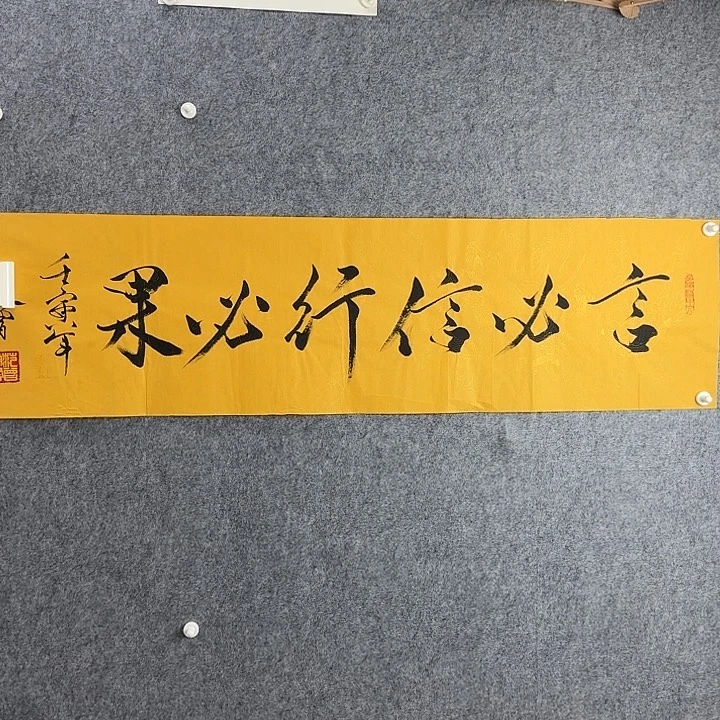 言必信行必果
壬寅年